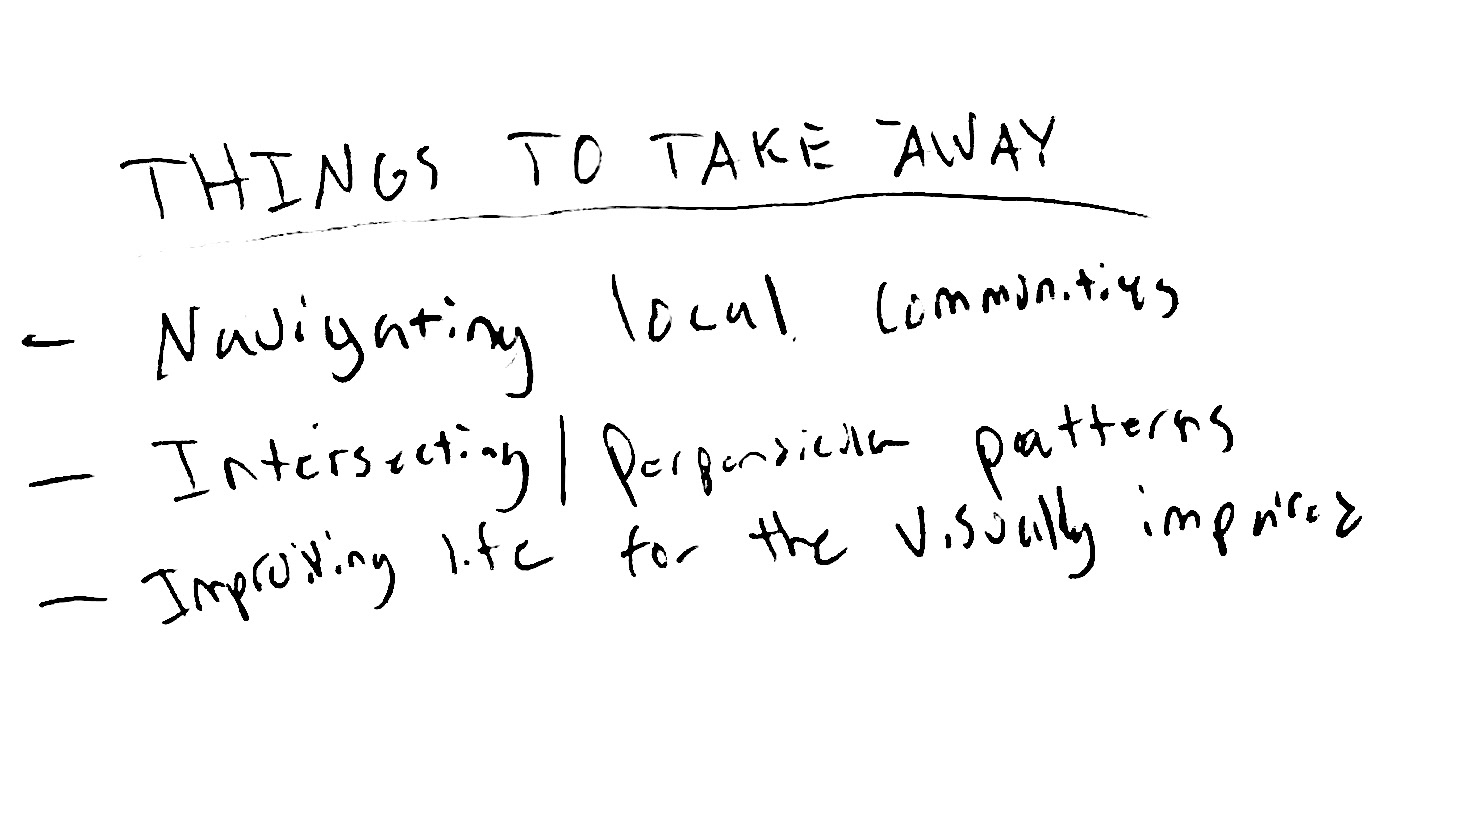 THINGS TO TAKE AWAY
- Navigating local communities
- Intersecting/Perpendicular patterns
- Improving life for the visually impaired